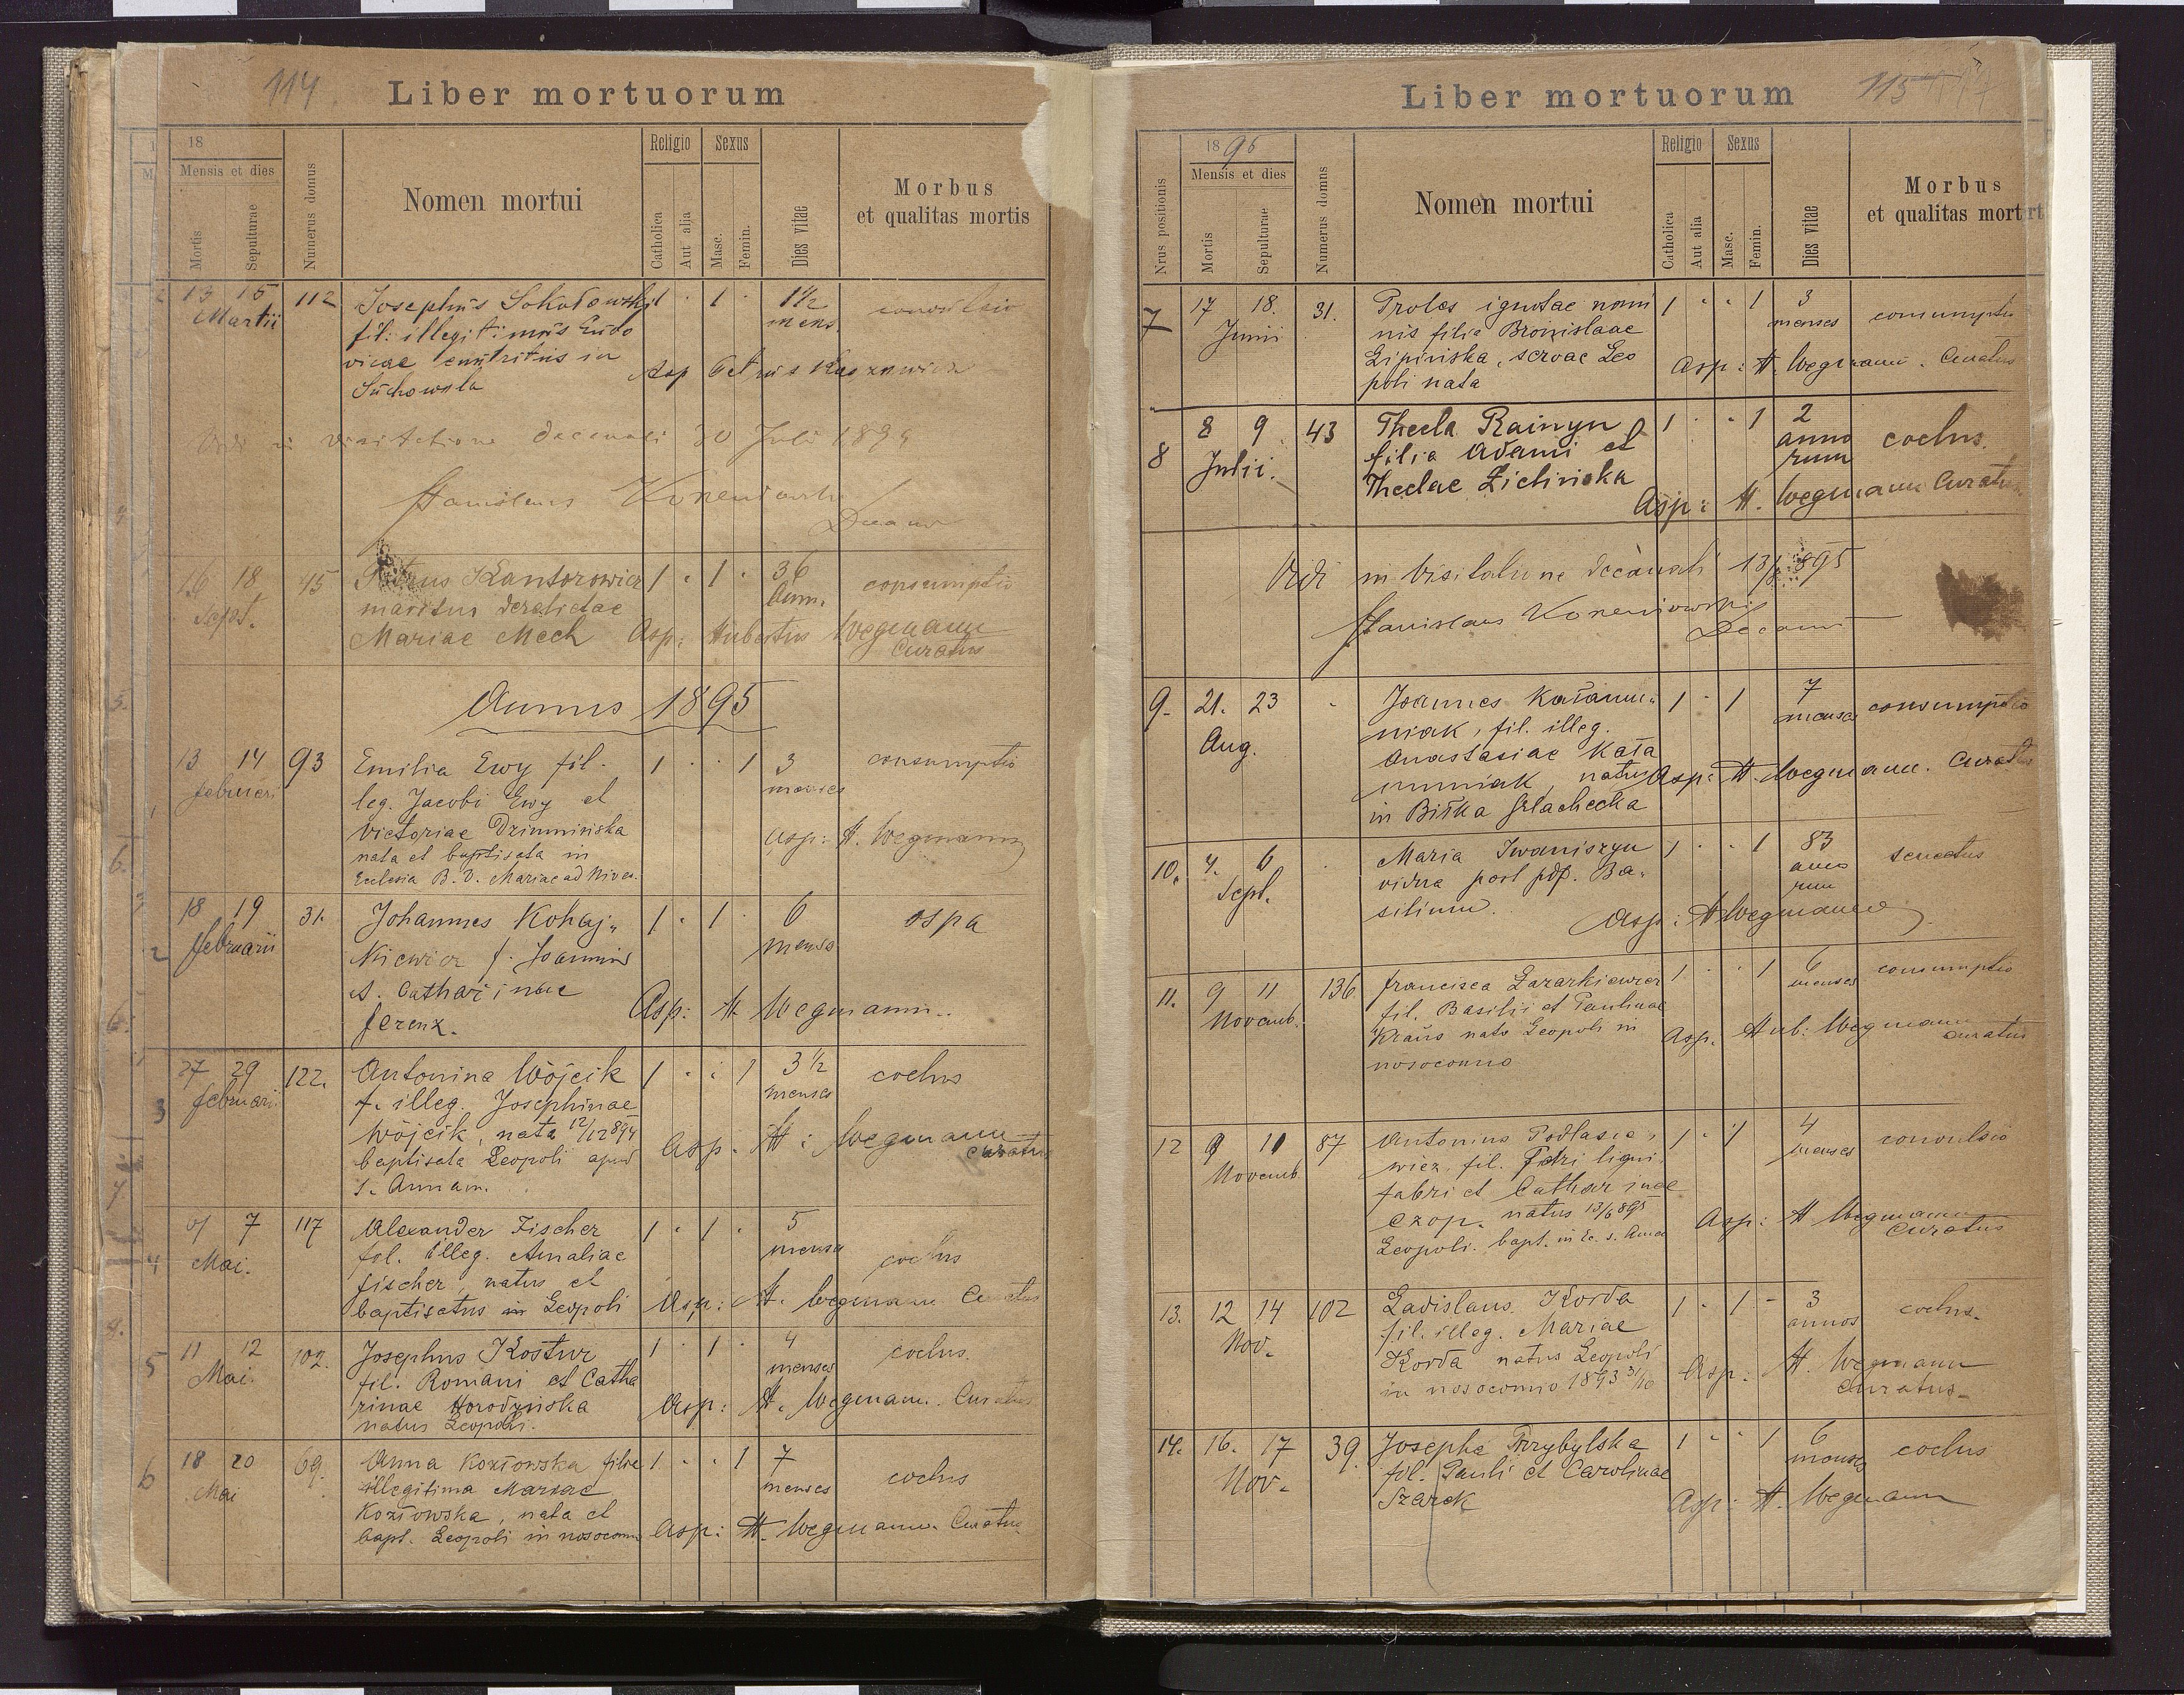 114
Liber mortuorum
18
Mensis et dies
Mortis
Sepulturae
Numerus domus
Nomen mortui
Religio
Catholica
Aut alia
Sexus
Masc.
Femin.
Dies vitae
Morbus
et qualitas mortis
13 15 112 Josephus Sokołowski 1 · 1 · 1½
Martii mens
fil: illegitimus Ludo
vicae
Asp Petrus
in visitatione decanali 30 Juli 1894
Stanislaus
Decanus
16 18 45 Petrus Kantorowicz 1 · 1 · 36 consumptio
Sept. Ann.
maritus derelictae
Mariae Mech Asp: Hubertus Wegmann
Curatus
Annus 1895
13 14 93 Emilia Ewy fil. 1 · · 1 3 consumptio
februari menses
leg. Jacobi Ewy et
Victoriae Dziuminska
nata et baptisata in
Ecclesia B. V. Mariae ad Nives.
Asp: H. Wegmann
1
18 19 31. Johannes Kohaj„ 1 · 1 · 6 ospa
2 februarii menses
Kiewicz f. Joannis
et. Catharinae
ferenz. Asp: H. Wegmann
27 29 122. Antonina Wójcik 1 · · 1 3½ coclus
3 februari menses
f. illeg. Josephinae
Wójcik, nata 12/12 894
baptisata Leopoli apud
s. Annam.
Asp. H: Wegmann
curatus
7 117 Alexander Fischer 1 · 1 · 5
4 Mai. menses coclus
fil. illeg. Amaliae
fischer, natus et
baptisatus in Leopoli Asp: H. Wegmann Curatus
11 12 102. Josephus Kostur 1 · 1 · 4 coclus.
5 Mai. menses
fil. Romani et Catha
rinae Horodyńska
natus Leopoli.
Asp: H. Wegmann. Curatus
18 20 69. Anna Kozłowska filia 1 · · 1 7 coclus
6 Mai menses
illegitima Mariae
Kozłowska, nata et
bapt. Leopoli in nosocomio
Asp: H. Wegmann. Curatus
115
Liber mortuorum
Nrus positionis
1896
Mensis et dies
Mortis
Sepulturae
Numerus domus
Nomen mortui
Religio
Catholica
Aut alia
Sexus
Masc.
Femin.
Dies vitae
Morbus
et qualitas mort
7 17 18. 31. Proles ignotae nomi 1 · · 1 3 consumptio
Junii menses
nis filia Bronislaae
Lipińska, servae Leo
poli nata
Asp: H. Wegmann. Curatus
8 8 9 43 Thecla Rainyn 1 · · 1 2 coclus.
Julii. anno
rum
filia Adami et
Theclae Zielińska
Asp: H. Wegmann Curatus
Vidi in Visitatione decanali 895
Stanislaus
Decanus
9. 21. 23 · Joannes Kałamu„ 1 · 1 7 consumptio
Aug. menses
niak, fil. illeg.
Anastasiae Kała
muniak, natus
in Biłka Szlachecka
Asp: H. Wegmann. Curatus
10. 4. 6 · Maria Iwaniszyn 1 · · 1 83 senectus
Sept. anno
rum
vidua post pdf. Ba„
silium.
Asp: H Wegmann
11. 9 11 136. francisca Lazarkiewicz 1 · · 1 6 consumptio
Novemb. menses
fil. Basilii et Paulinae
Kraus nata Leopoli in
nosocomio
Asp. Hub: Wegmann
curatus
12 9 11 87 Antonius Podlasie„ 1 · 1 4 convulsio
Novemb menses
wicz, fil. Petri ligni
fabri et Catharinae
Czop. natus 13/6 895
Leopoli. bapt. in Ec. s. Annae
Asp: H Wegmann
Curatus
13. 12 14 102 Ladislaus Korda 1 · 1 - 3 coclus.
Nov. annos
fil. illeg. Mariae
Korda natus Leopoli
in nosocomio 1893 3/10
Asp: H. Wegmann
Curatus
14. 16. 17 39. Josepha Przybylska 1 · · 1 6 coclus
Nov. menses
fil. Pauli et Carolinae
Szarek
Asp: H. Wegmann